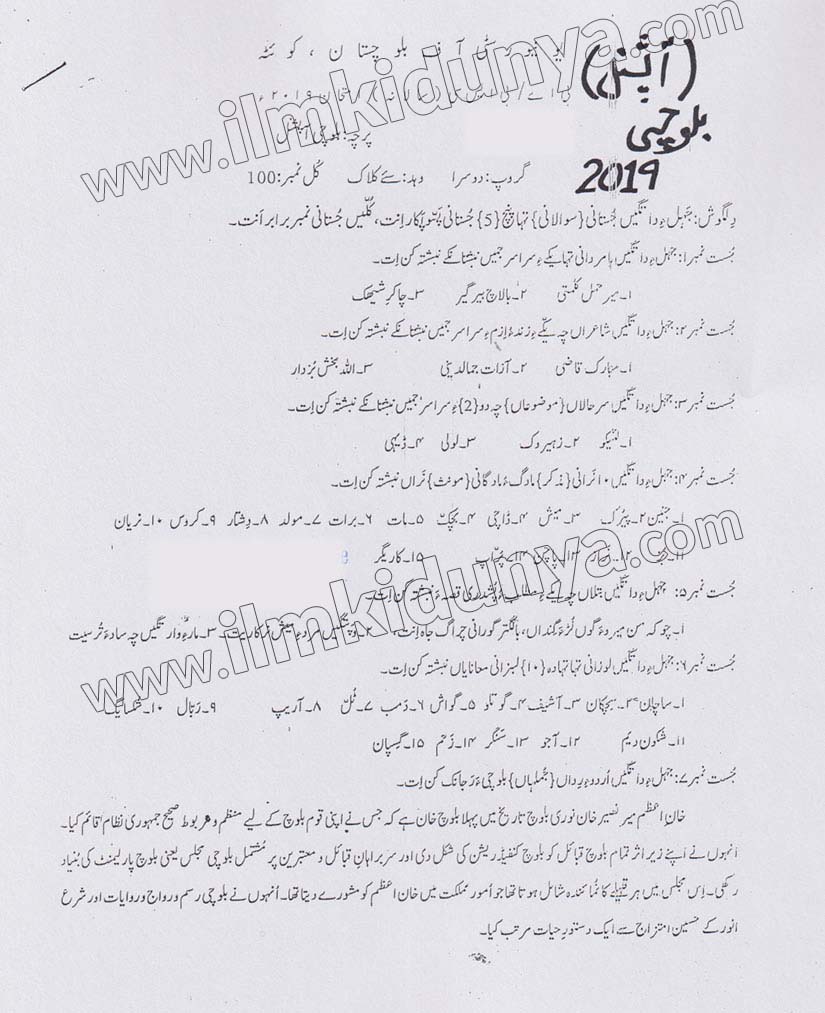 یونیورسٹی آف بلوچستان، کوئٹہ
(آپشنل)
بلوچی
2019
پرچہ: بلوچی آپشنل
گروپ: دوسرا وہد: سئے کلاک کُل نمبر: 100
دِلگوش: جَہل ءِ داتگیں جُستانی {سوالانی} تہا پنچ {5} جُستانی پَسّو پکار اِنت، کُلّیں جُستانی نمبر برابر اَنت۔
جُست نمبر ۱: جہل ءِ داتگیں نامردانی تہا یکے ءِ سرا سرجمیں نبشتانکے نبشتہ کن اِت۔
۱۔ میر حمل کلمتی ۲۔ بالاچ بیرگیر ۳۔ چاکرِ شیہک
جُست نمبر ۲: جہل ءِ داتگیں شاعراں چہ یکّے ءِ زند ءُ ازم ءِ سرا سرجمیں نبشتانکے نبشتہ کن اِت۔
۱۔ مبارک قاضی ۲۔ آزات جمالدینی ۳۔ اللہ بخش بُزدار
جُست نمبر ۳: جہل ءِ داتگیں سرحالاں {موضوعاں} چہ دو {2} ءِ سرا سرجمیں نبشتانکے نبشتہ کن اِت۔
۱۔ لئیکو ۲۔ زہیروک ۳۔ لولی ۴۔ ڈیہی
جُست نمبر ۴: جہل ءِ داتگیں ۱۰ نرانی {مذکر} مادگ ءُ مادگانی {مونث} نَراں نبشتہ کن اِت۔
۱۔ جنین ۲۔ پیرُک ۳۔ میش ۴۔ ڈاچی ۴۔ بچکّ ۵۔ مات ۶۔ برات ۷۔ مولد ۸۔ دِشتار ۹۔ کروس ۱۰۔ نریان
۱۲۔ زَمار ۱۳۔ پاچن ۱۴۔ ۱۵۔ کاریگر
جُست نمبر ۵: جہل ءِ داتگیں بتلاں چہ یکے ءِ مطلب ءُ پُشدری قصہ ءَ نبشتہ کن اِت۔
۱۔ چو کہ من میر دءَ گوں لُڑ ءَ گنداں، ہانگلتر گورانی چراگ جاہ اِنت، ۲۔ مرد ءِ میش نر کاریت۔ ۳۔ مار ءِ وار تگیں چہ ساد ءَ تُرسیت
جُست نمبر ۶: جہل ءِ داتگیں لوزانی تہا تہا دہ {۱۰} لبزانی معنایاں نبشتہ کن اِت۔
۱۔ ساچان ۲۔ ہچکان ۳۔ آشیف ۴۔ گوتاو ۵۔ گواش ۶۔ دَمب ۷۔ ٹُلّ ۸۔ آریپ ۹۔ رَبّال ۱۰۔
۱۱۔ شگون دیم ۱۲۔ آجو ۱۳۔ سَنگر ۱۴۔ زَحم ۱۵۔ گیسپان
جُست نمبر ۷: جہل ءِ داتگیں اُردو ءِ رِداں {جُملہاں} بلوچی ءَ رَجانک کن اِت۔
خانِ اعظم میر نصیر خان نوری بلوچ تاریخ میں پہلا بلوچ خان ہے کہ جس نے اپنی قوم بلوچ کے لیے منظم و مربوط صحیح جمہوری نظام قائم کیا۔
انہوں نے اپنے زیر اثر تمام بلوچ قبائل کو بلوچ کنفیڈریشن کی شکل دی اور سربراہانِ قبائل و معتبرین پر مُشتمل بلوچی مجلس یعنی بلوچ پارلیمنٹ کی بنیاد
رکھی۔ اِس مجلس میں ہر قبیلے کا نُمائندہ شامل ہوتا تھا جو اُمور مملکت میں خان اعظم کو مشورے دیتا تھا۔ اُنہوں نے بلوچی رسم و رواج و روایات اور شرع
انور کے حسین امتزاج سے ایک دستورِ حیات مرتب کیا۔
www.ilmkidunya.com
www.ilmkidunya.com